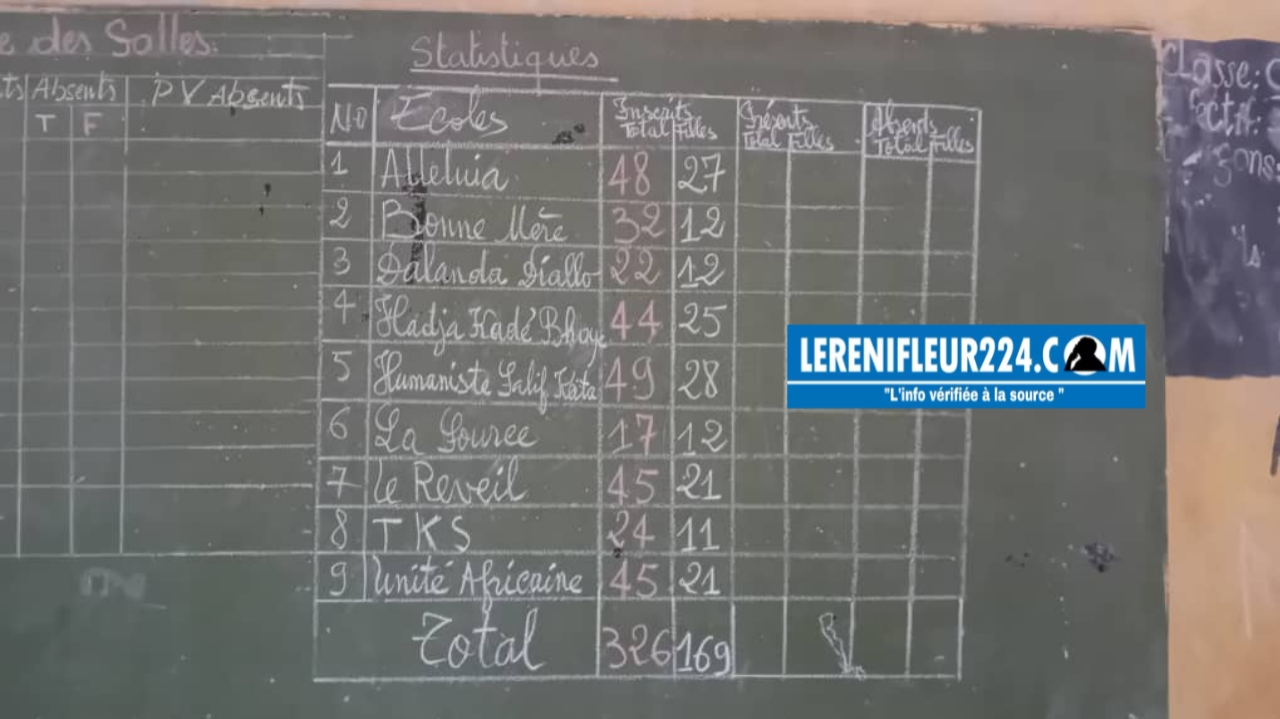 e des Salles.
ts Absents P V Absents
T F
Statistiques
No Ecoles Inscrits Présents Absents
Total Filles Total Filles Total Filles
1 Alleluia 48 27
2 Bonne Mère 32 12
3 Dalanda Diallo 22 12
4 Hadja Kadé Bhoye 44 25
5 Humaniste Salif Kéita 49 28
6 La Source 17 12
7 Le Reveil 45 21
8 T K S 24 11
9 Unité Africaine 45 21
Total 326 169
LERENIFLEUR224.COM
"L'info vérifiée à la source "
Classe: